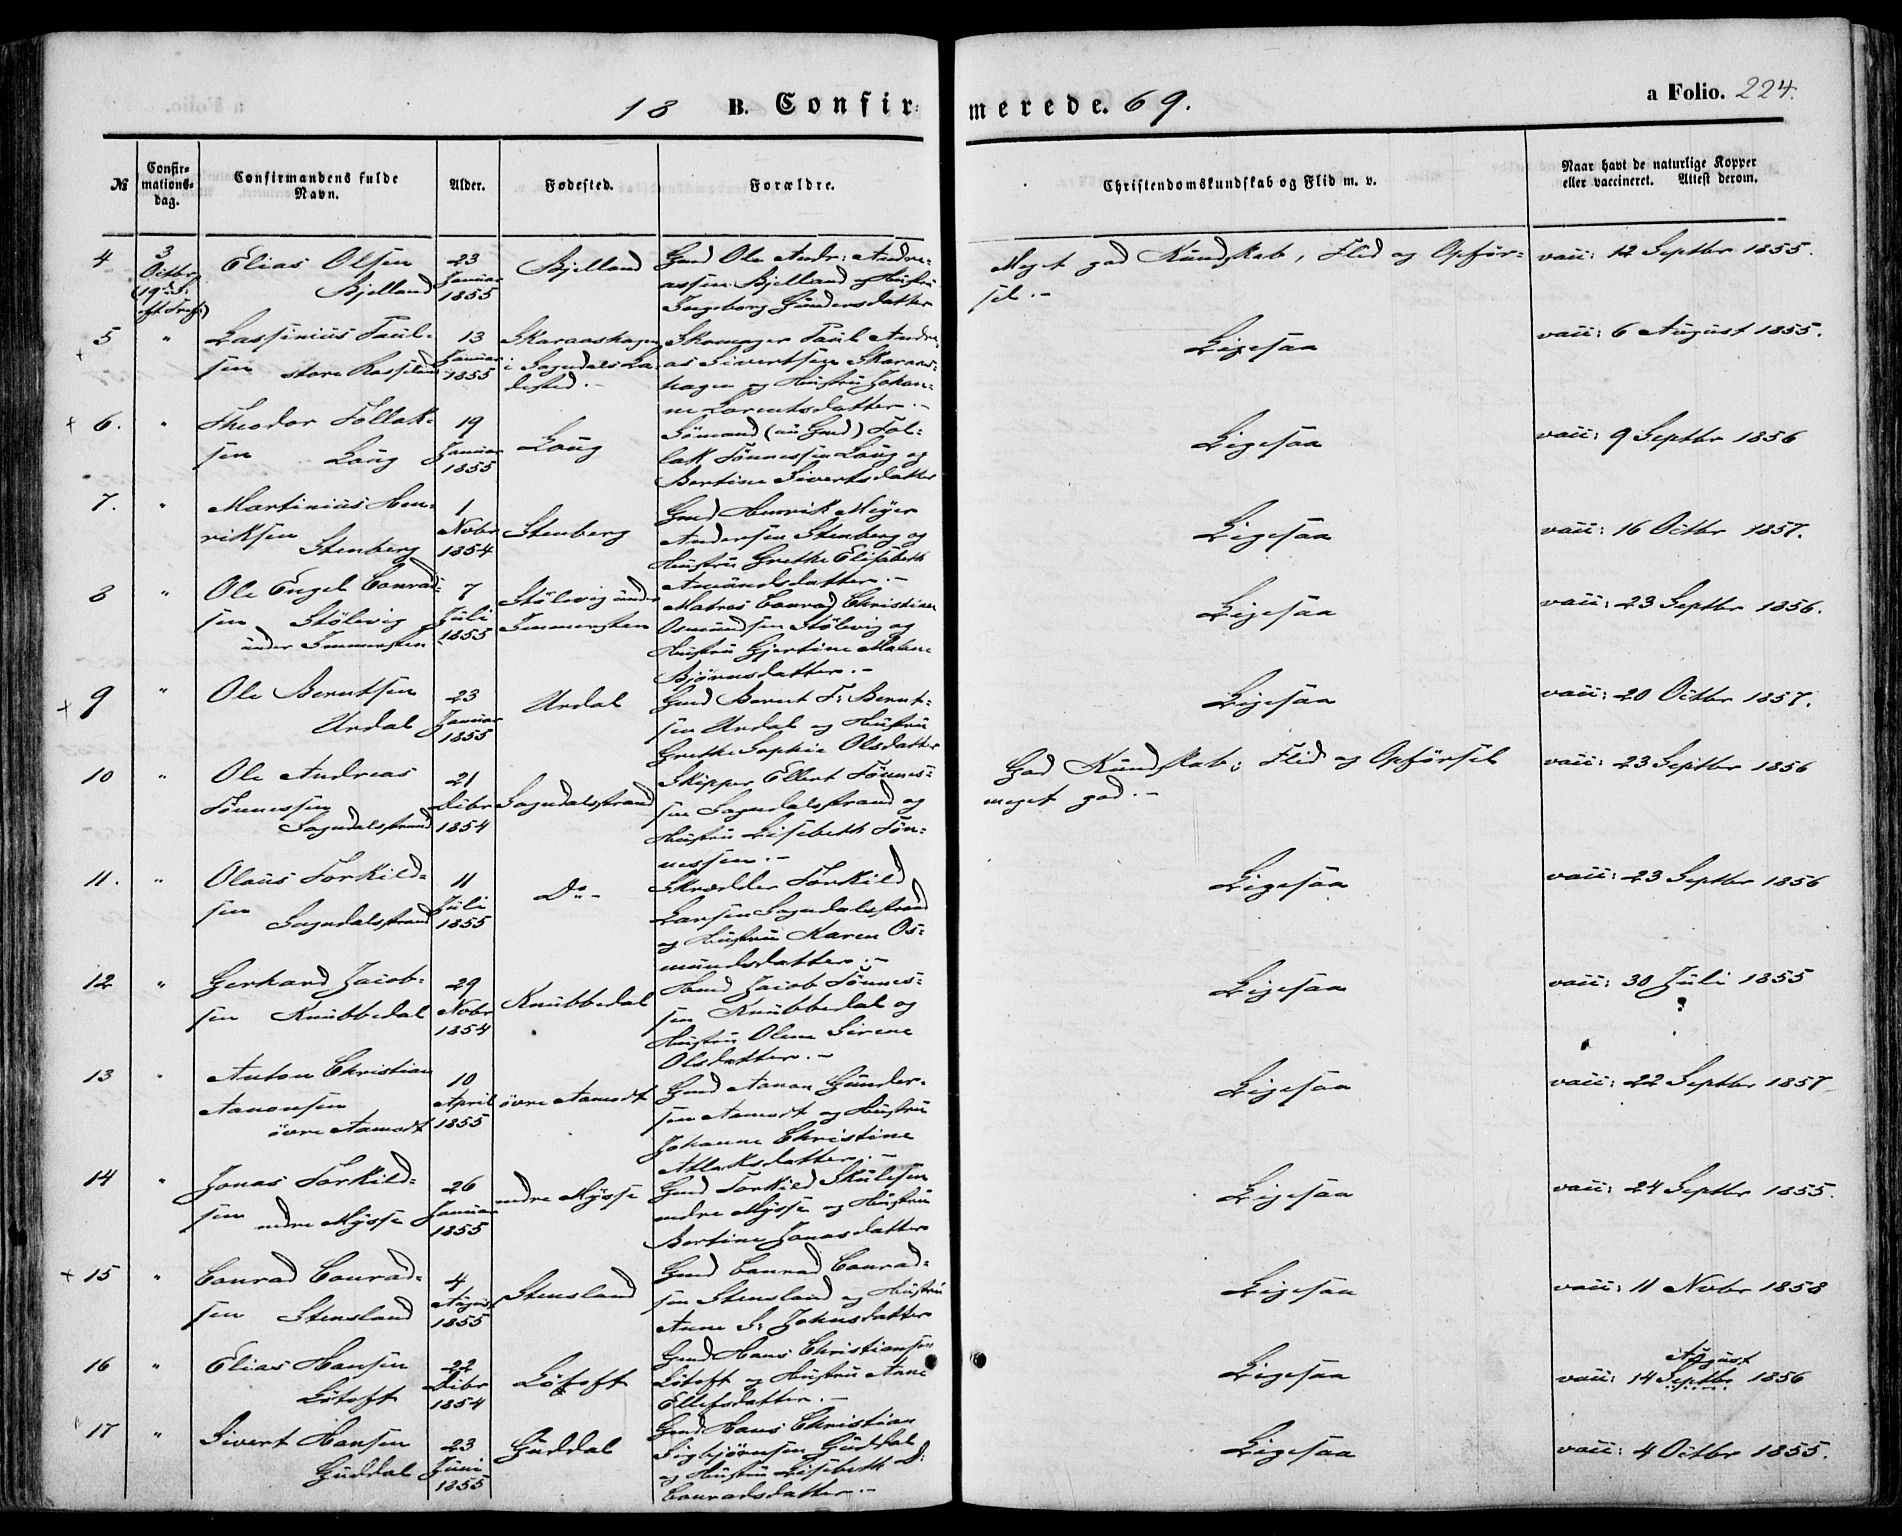 18 B. Confirmerede. 69.
a Folio. 224.
№
Confirmations-dag.
Confirmandens fulde Navn.
Alder.
Fødested.
Forældre.
Christendomskundskab og Flid m. v.
Naar havt de naturlige Kopper eller vaccineret. Attest derom.
4
3
Octbr
(19de S.
eft. Tref:)
Elias Olsen
Bjelland
23
Januar
1855
Bjelland
Gmd Ole Andr: Andre-
assen Bjelland og Hustru
Ingeborg Gundersdatter
Meget god Kundskab, Flid og Opfør-
sel.-
vacc: 12 Septbr 1855.
5
"
Lassenius Taul-
sen store Rosseland
13
Januar
1855
Skaraashagen
i Sogndals La-
dested.-
Skomager Taul Andre-
as Sivertsen Skaraas-
hagen og Hustru Johan-
ne Lorentsdatter.-
Ligesaa
vacc: 6 August 1855.
+ 6.
"
Theodor Tollak-
sen Loug
19
Januar
1855
Loug
Sømand (nu Gmd) Tol-
lak Tønnessen Loug og
Bertine Sivertsdatter
Ligesaa
vacc: 9 Septbr 1856
7.
"
Martinius Hen-
riksen
Stenberg
1
Novbr
1854
Stenberg
Gmd Henrik Meyer
Andersen Stenberg og
Hustru Grethe Elisabeth
Amundsdatter.-
Ligesaa
vacc: 16 Octbr 1857.
8
"
Ole Engel Conrad-
sen Stølevig
under Immersten
7
Juli
1855
Stølevig under
Immersten
Matros Conrad Christian
Osmundsen Stølevig og
Hustru Gjertine Malene
Bjørnsdatter.-
Ligesaa
vacc: 23 Septbr 1856.
+ 9
"
Ole Berntsen
Urdal
23
Januar
1855
Urdal
Gmd Bernt T: Bernt-
sen Urdal og Hustru
Grethe Sophie Olsdatter
Ligesaa
vacc: 20 Octbr 1857.
10
"
Ole Andreas
Tønnessen
Sogndalstrand
21
Decbr
1854
Sogndalsstrand
Skipper Ellert Tønnes-
sen Sogndalsstrand og
Hustru Lisebeth Tøn-
nessen.-
God Kundskab; Flid og Opførsel
meget god.-
vacc: 23 Septbr 1856
11.
"
Olaus Torkild-
sen
Sogndalsstrand
11
Juli
1855
Do -
Skrædder Torkild
Larsen Sogndalsstrand
og Hustru Karen Os-
mundsdatter.-
Ligesaa
vacc: 23 Septbr 1856
12
"
Gerhard Jacob-
sen Knubbedal
29
Novbr
1854
Knubbedal
Hmd Jacob Tønnes-
sen Knubbedal og
Hustru Olene Sirene
Olsdatter.-
Ligesaa
vacc: 30 Juli 1855
?
13
"
Anton Christian
Aanonsen
øvre Aamodt
10
April
1855
øvre Aamodt
Gmd Aanon Gunder-
sen Aamodt og Hustru
Johanne Christine
Atlaksdatter.-
Ligesaa
vacc: 22 Septbr 1857
14
"
Jonas Torkild-
sen nedre Mysse
26
Januar
1855
nedre Mysse
Gmd Torkild Skulesen
nedre Mysse og Hustru
Bertine Jonasdatter
Ligesaa
vacc: 24 Septbr 1855.
+ 15
"
Conrad Conrad-
sen Stensland
4
August
1855
Stensland
Gmd Conrad Conrad-
sen Stensland og Hustru
Anne S: Johnsdatter
Ligesaa
vacc: 11 Novbr 1858
16
"
Elias Hansen
Løtoft
22
Decbr
1854
Løtoft
Gmd Hans Christiansen
Løtoft og Hustru Anne
Ellefsdatter.-
Ligesaa
August
vacc: 14 Septbr 1856
17
"
Sivert Hansen
Guddal
23
Juni
1855
Guddal
Gmd Hans Christian
Sigbjørnsen Guddal
og Hustru Lisebeth D:
Conradsdatter.-
Ligesaa
vacc: 4 Octbr 1855.